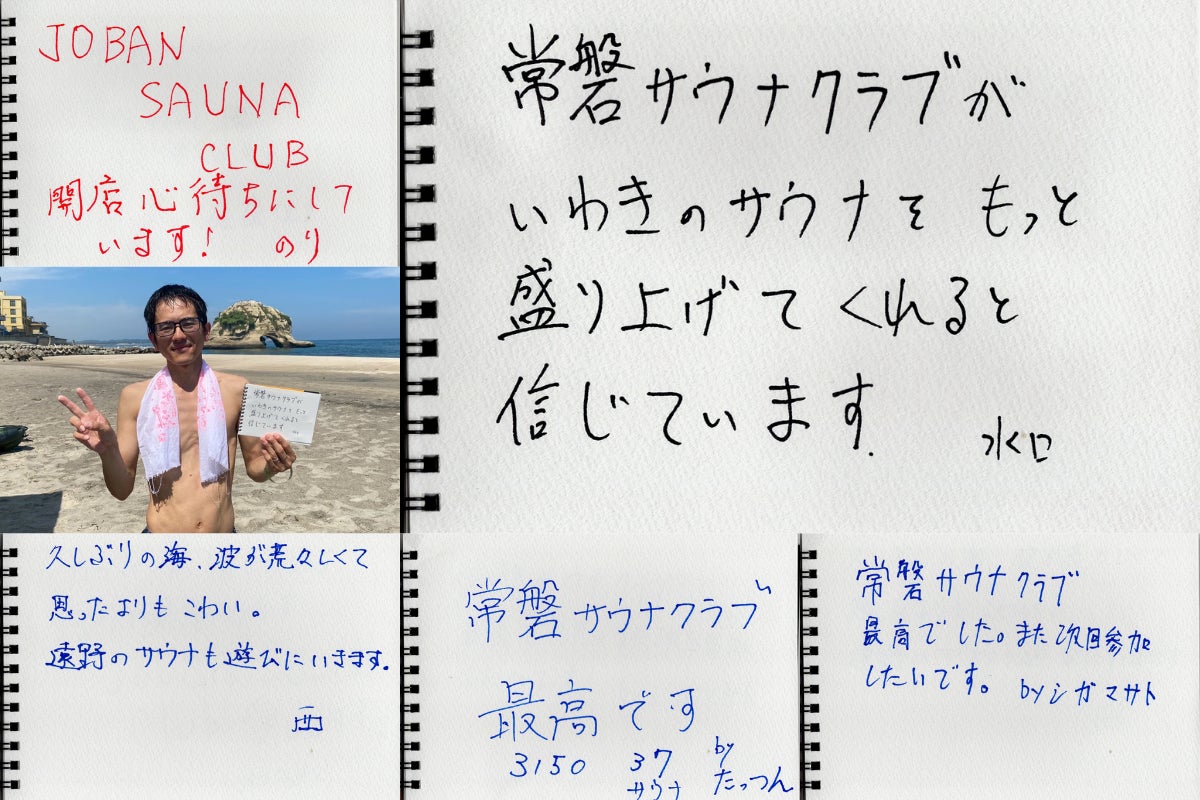 JOBAN
SAUNA
CLUB
開店心待ちにして
います! のり
常磐サウナクラブが
いわきのサウナを もっと
盛り上げてくれると
信じています. 水口
常磐サウナクラブが
いわきのサウナを もっと
盛り上げてくれると
信じています
久しぶりの海、波が荒々しくて
思ったよりもこわい。
遠野のサウナも遊びにいきます.
西
常磐サウナクラブ
最高です
3150 37 by
サウナ たっつん
常磐サウナクラブ
最高でした。また次回参加
したいです。 byシガマサト